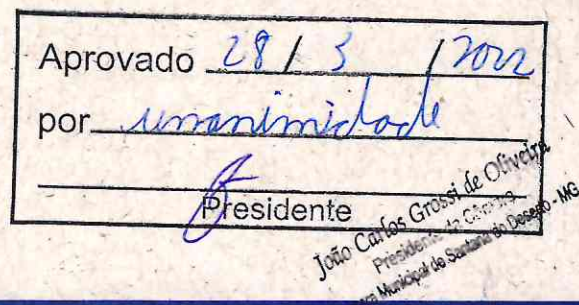 Aprovado 28 / 3 / 2022
por unanimidade
Presidente
João Carlos Grossi de Oliveira
Presidente da Câmara
Municipal de Santana do Deserto - MG